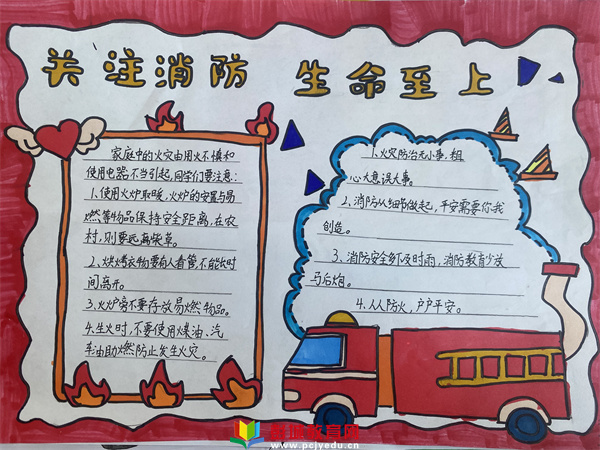 关注消防 生命至上
家庭中的火灾由用火不慎和
使用电器不当引起,同学们要注意:
1、使用火炉取暖,火炉的安置与易
燃等物品保持安全距离,在农
村,则要远离柴草。
2、烘烤衣物要有人看管,不能长时
间离开。
3、火炉旁不要存放易燃物品。
4、生火时,不要使用煤油、汽
油助燃防止发生火灾。
1、火灾防治无小事,粗
心大意误大事。
2、消防从细节做起,平安需要你我
创造。
3、消防安全多下及时雨,消防教育少放
马后炮。
4、人人防火,户户平安。
教育居
www.pcjyedu.cn